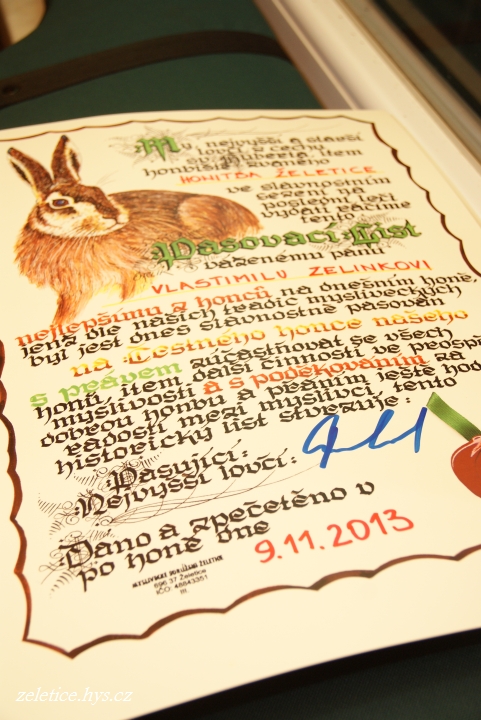 My, nejvyšší a starší
lovčí z cechu
sv. Huberta, item
honbiště zvaného
HONITBA ŽELETICE
ve slavnostním
sezení na
poslední leči
výdati ráčíme
tento
Pasovací List
váženému panu
VLASTIMILU ZELINKOVI
nejlepšímu z honců na dnešním honě,
jenž dle našich tradic mysliveckých
byl jest dnes slavnostně pasován
na Čestného honce našeho
s právem zúčastňovat se všech
honů, item další činnosti ve prospěch
myslivosti a s poděkováním za
dobrou honbu a přáním ještě hod
radosti mezi myslivci, tento
historický list stvrzuje:
Pasující:
Nejvyšší lovčí:
Dáno a zpečetěno v
po honě dne
9.11.2013
MYSLIVECKÉ SDRUŽENÍ ŽELETICE
696 37 Želetice
IČO: 48843351
zeletice.hys.cz